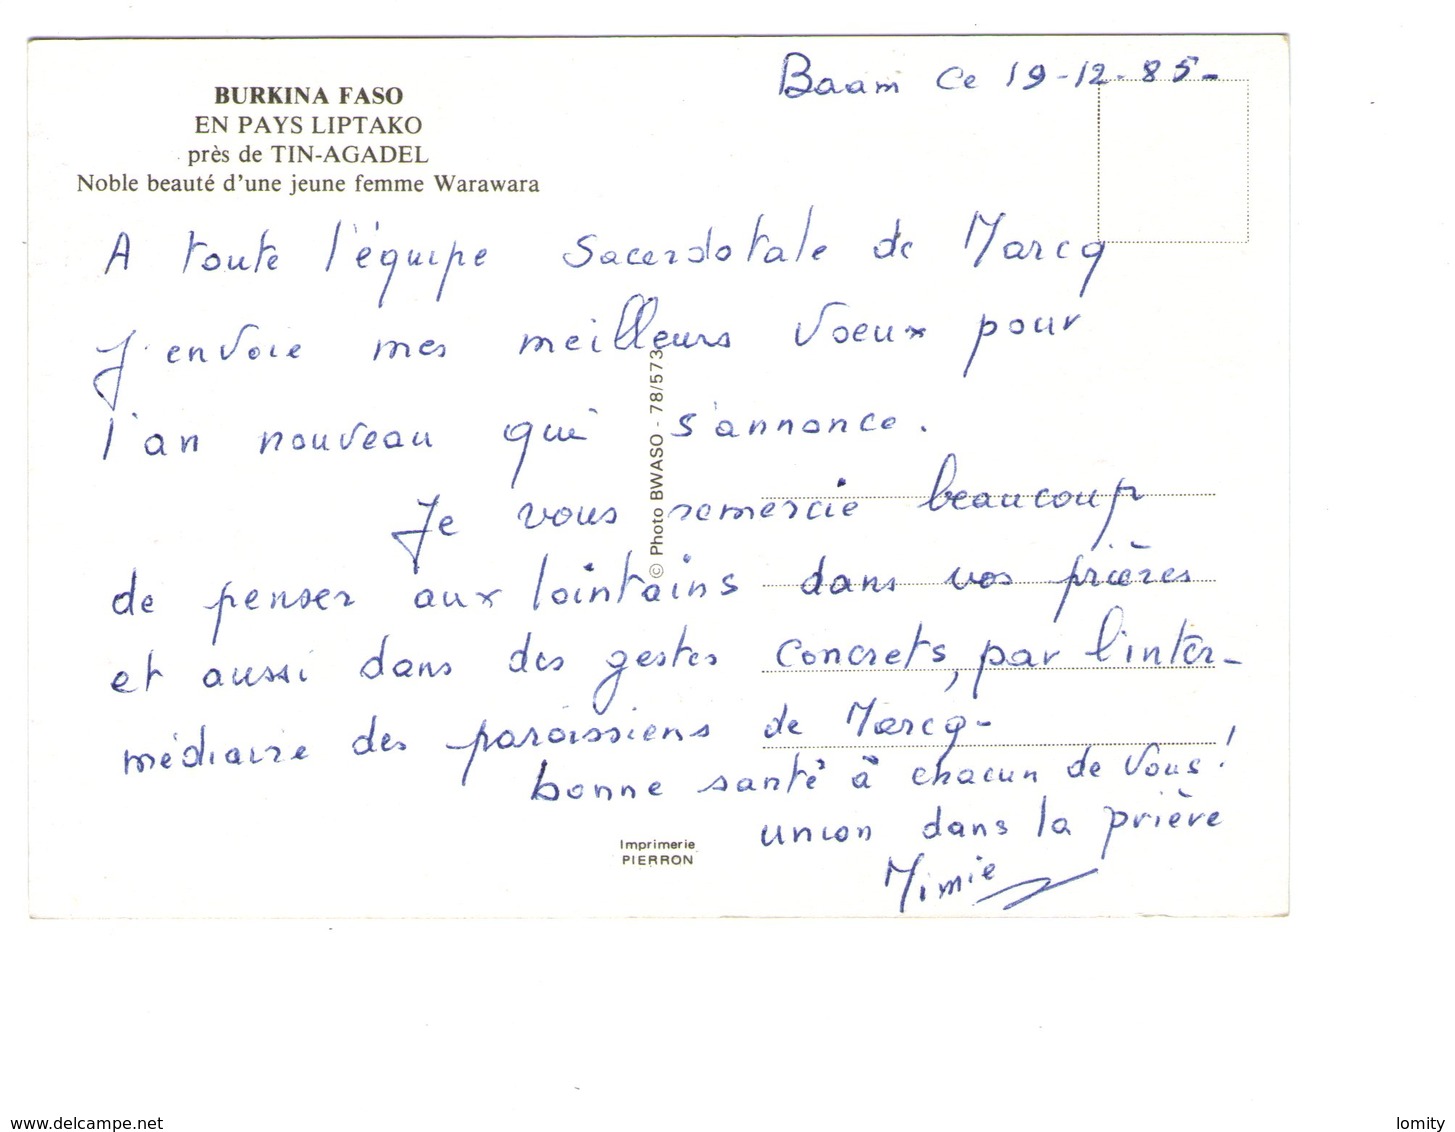 Baam Ce 19-12-85-
BURKINA FASO
EN PAYS LIPTAKO
près de TIN-AGADEL
Noble beauté d'une jeune femme Warawara
A toute l'équipe Sacerdotale de Marcq
J'envoie mes meilleurs Voeux pour
l'an nouveau qui s'annonce.
Je vous remercie beaucoup
de penser aux lointains dans vos prières
et aussi dans des gestes concrets, par l'inter-
médiaire des paroissiens de Marcq-
bonne santé à chacun de Vous!
union dans la prière
Mimie
© Photo BWASO - 78/573
Imprimerie
PIERRON
www.delcampe.net
lomity